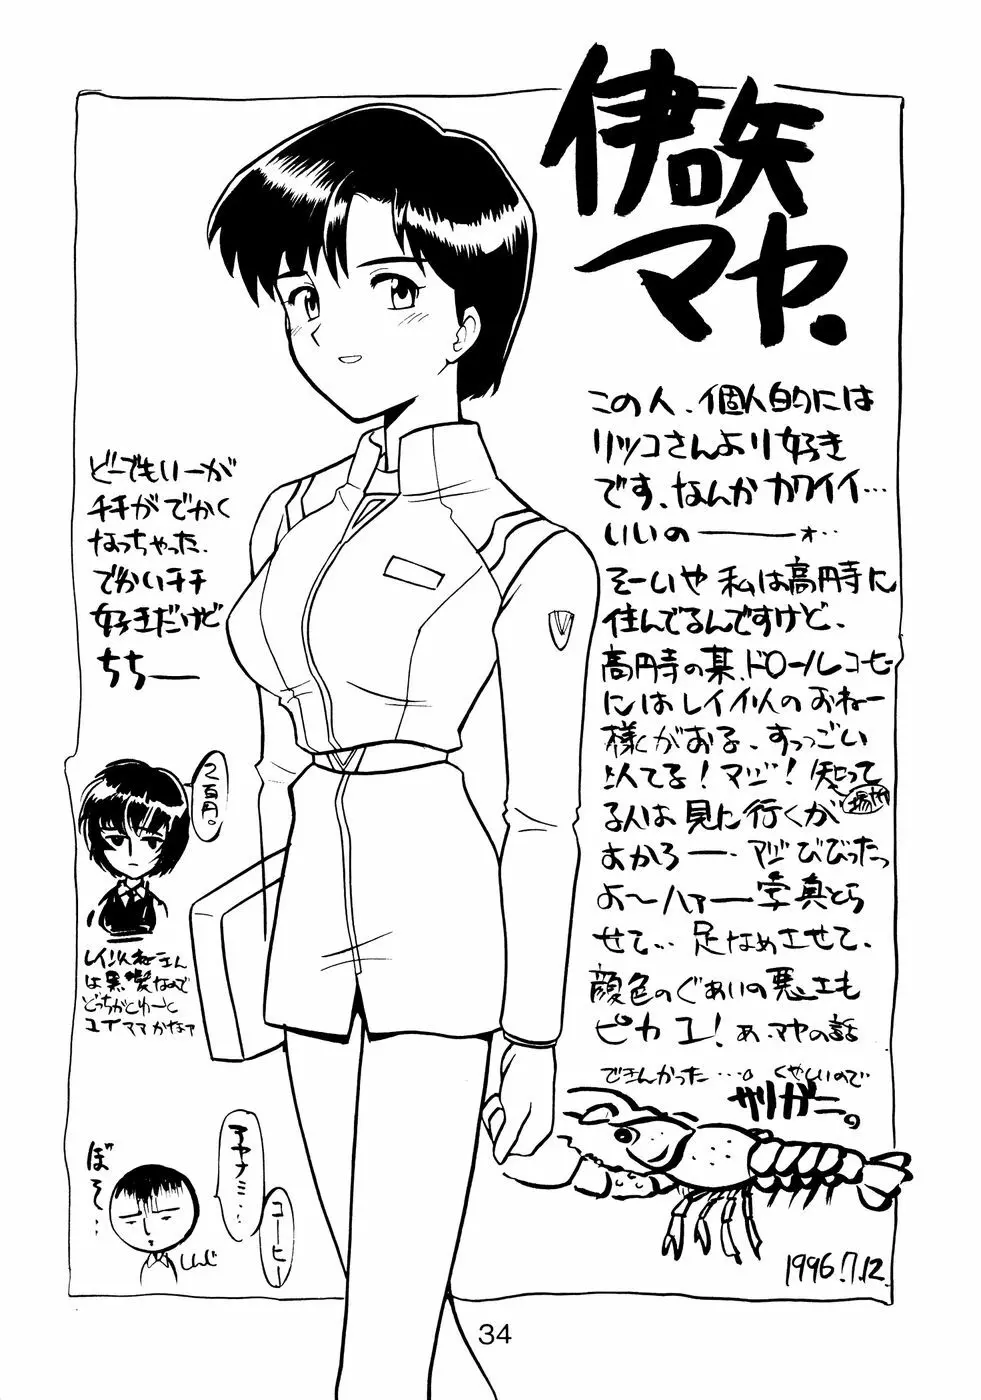 伊吹
マヤ.
この人、個人的には
リツコさんより好き
です、なんかカワイイ…
いいのーーォ‥
そーいや 私は高円寺に
住んでるんですけど、
高円寺の某、ドロールコヒ
にはレイ似の おねー
様がおる、すっっごい
似てる！マジ！知って
る人は見に行くが
場所
よかろー‥マジびびったっ
よ〜ハァー写真とら
せて…足なめさせて、
顔色のぐあいの悪さも
ピカ ユ！あ、マヤの話
できんかった…。くやしいので
ザリガニ。
1996.7.12.
どーでもいーが
チチがでかく
なっちゃった.
でかいチチ
好きだけど
ちちー
2百円。
レイ似ねーさん
は黒髪なので
どっちかとゆーと
ユイママかなァ
ぼそ‥
コーヒー
しんじ
34